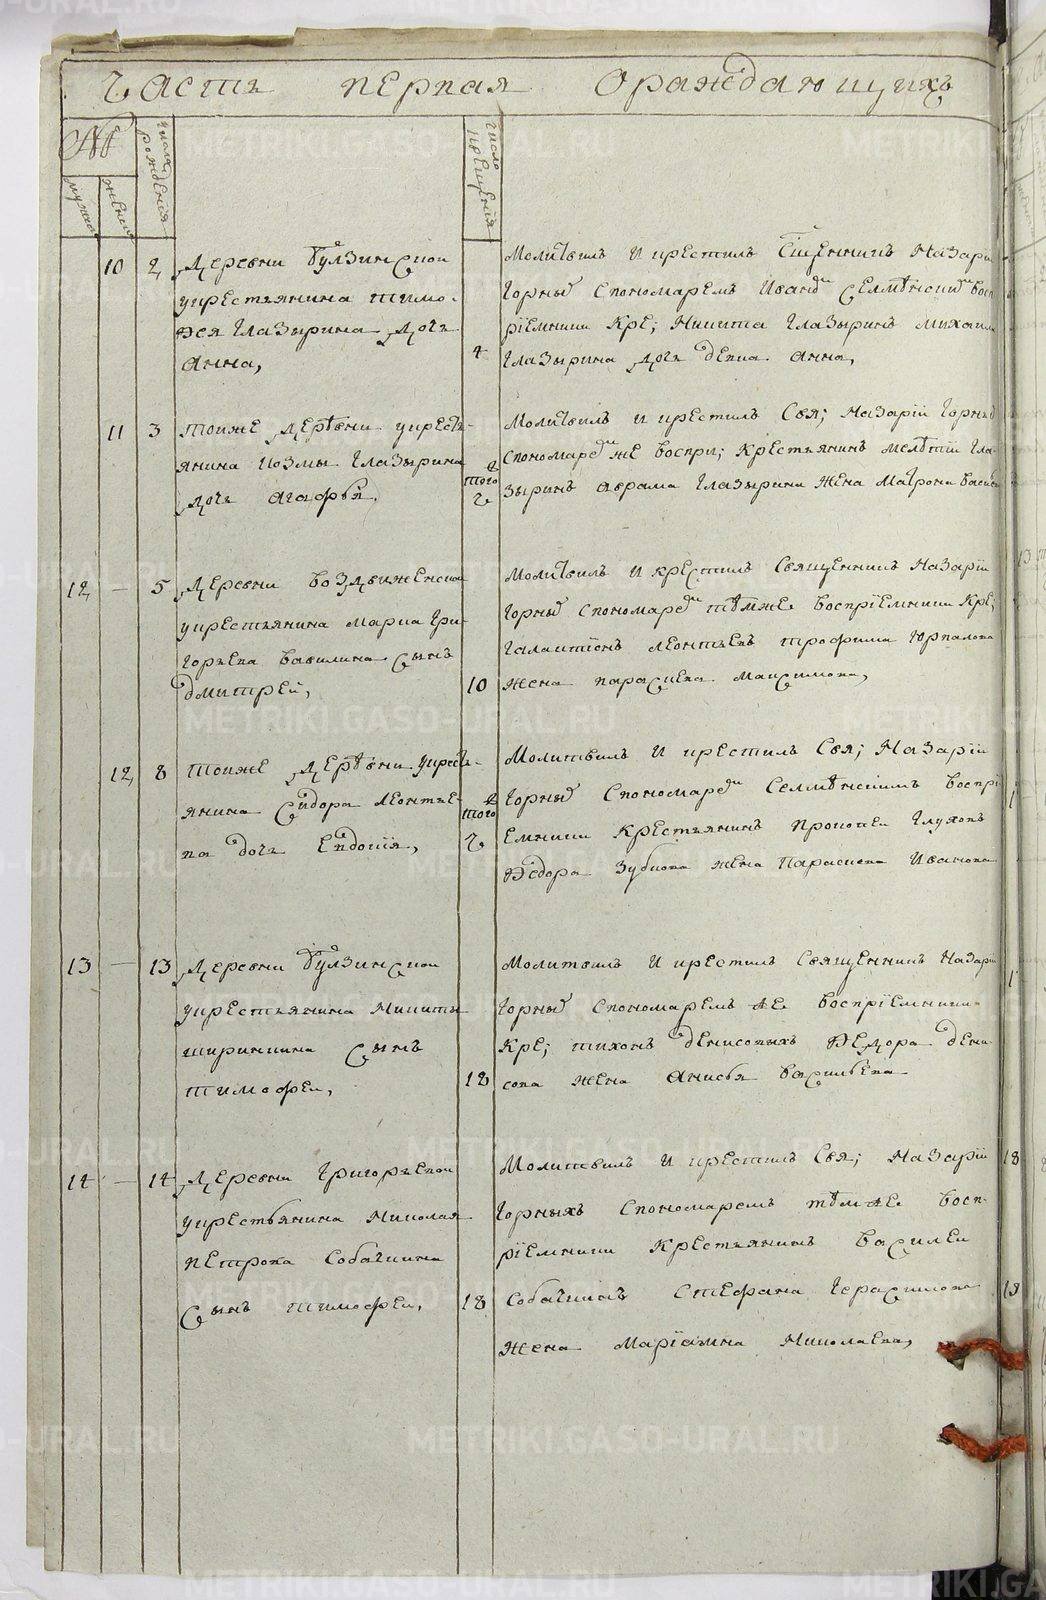 Часть первая о раждающихъ
№
мужес
женск
число рождения
число крещения
10 2 Деревни Булзинской
у крестьянина Тимо-
фея Глазырина дочь
Анна,
4
Молитвилъ и крестилъ Сщенникъ Назарій
Горныⷯ спономаремъ Иваноⷨ Селмѣнскиⷨ восп
ріемники Кре; Никита Глазыринъ Михаила
Глазырина дочь девка Анна,
11 3 Тоиже деревни у кресть-
янина Козмы Глазырина
дочь Агафья,
4 того ч
Молитвилъ и крестилъ Свя; Назарій Горныⷯ
спономареⷨ же воспри; Крестьянинъ Мелѣтій Гла-
зыринъ Аврама Глазырина жена Матрона Васил
12 — 5 Деревни Воздвиженской
у крестьянина Марка Гри-
горьева Вавилина сынъ
Дмитрей,
10
Молитвилъ и крестилъ Священникъ Назарій
Горныⷯ спономареⷨ тѣмже восприемники Кре;
Галактіонъ Леонтьевъ Трофима
жена Параскева Максимова,
12 8 Тоиже деревни у кресть-
янина Сидора Леонтье-
ва дочь Евдокія,
4 того ч
Молитвилъ и крестилъ Свя; Назарій
Горныⷯ спономареⷨ Селмѣнскимъ воспрі-
емники Крестьянинъ Прокопей Глуховъ
Федора Зубкова жена Параскева Иванова
13 — 13 Деревни Булзинской
у крестьянина Никиты
Ширинкина сынъ
Тимофей,
18
Молитвилъ и крестилъ Священникъ Назарій
Горныⷯ спономаремъ же воспріемники
Кре; Тихонъ Денисовыхъ Федора Дени
сова жена Анисья Васильева
14 — 14 Деревни Григорьевой
у крестьянина Николая
Петрова Собачкина
сынъ Тимофей,
18
Молитвилъ и крестилъ Свя; Назарій
Горныхъ спономаремъ тѣмже восп-
ріемники крестьянинъ Василей
Собачкинъ Стефана Герасимова
жена Маріамна Николаева,